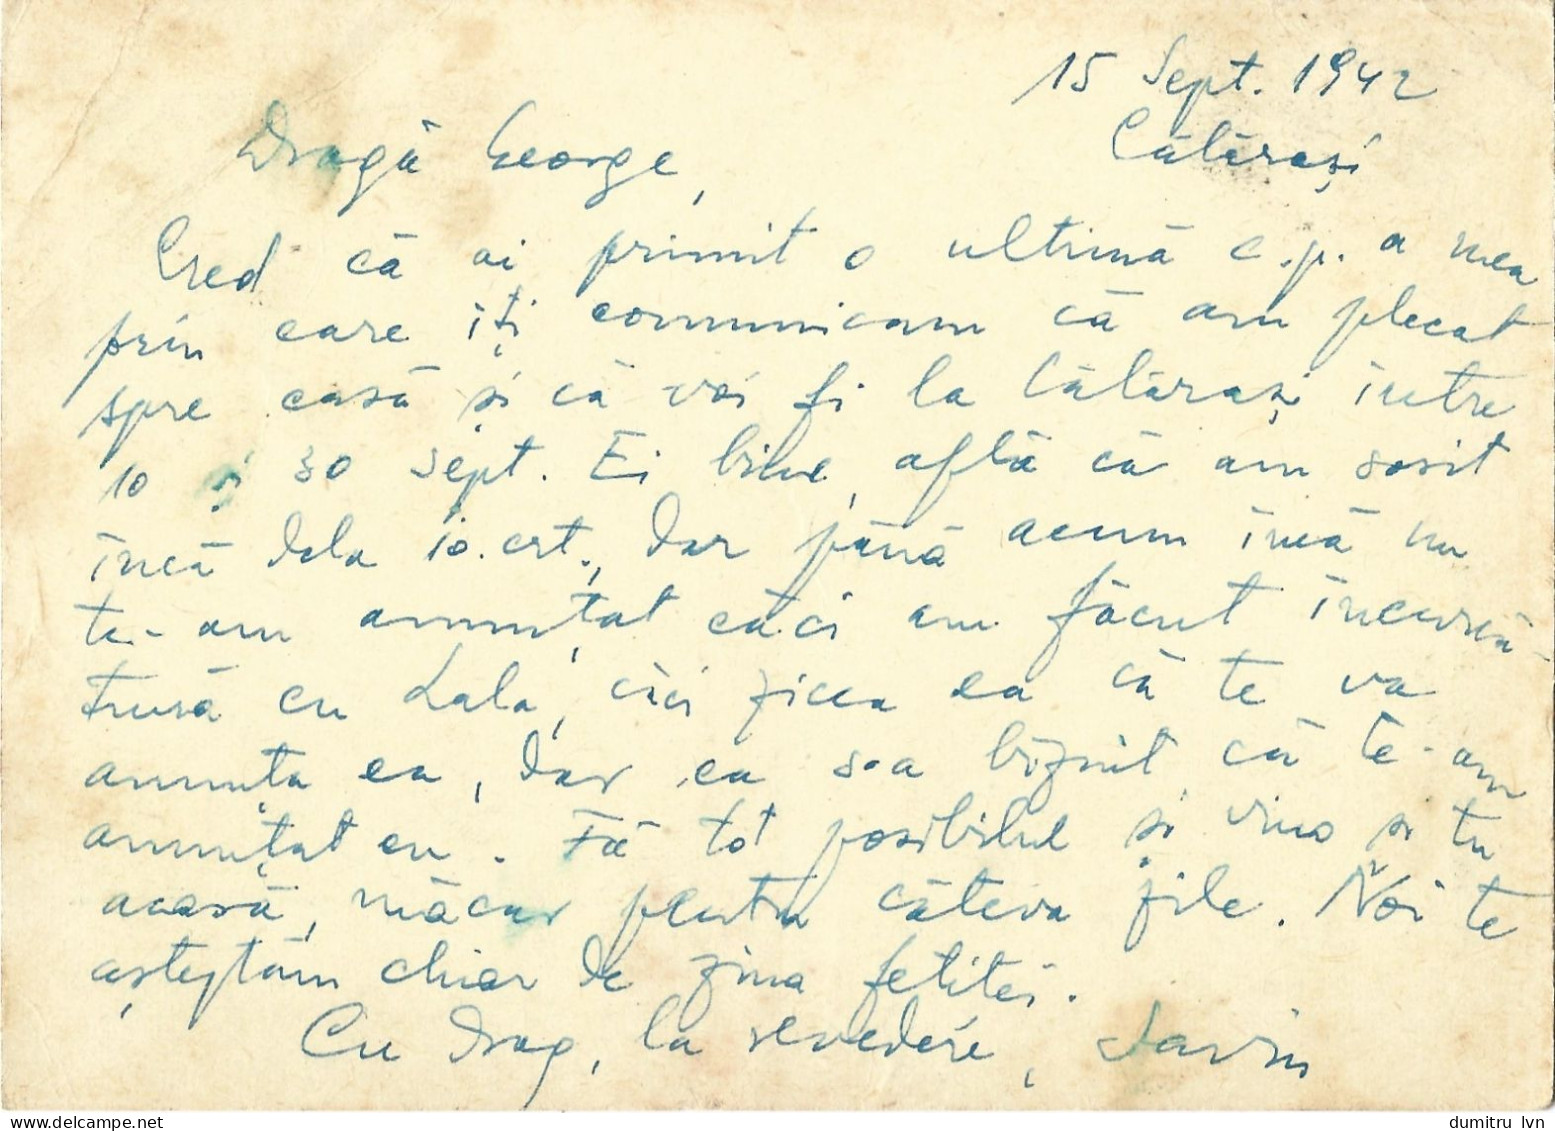 15 Sept. 1942
Călărași
Dragă George,
Cred că ai primit o ultimă c.p. a mea
prin care îți comunicam că am plecat
spre casă și că voi fi la Călărași între
10 și 30 sept. Ei bine, află că am sosit
încă dela 10.crt., dar până acum încă nu
te-am anunțat căci am făcut încurcă-
tură cu Lala, căci zicea ea că te va
anunța ea, dar ea s-a bizuit că te-am
anunțat eu. Fă tot posibilul și vino și tu
acasă, măcar pentru câteva zile. Noi te
așteptăm chiar de ziua fetiței.
Cu drag, la revedere, Savin
dumitru lvn